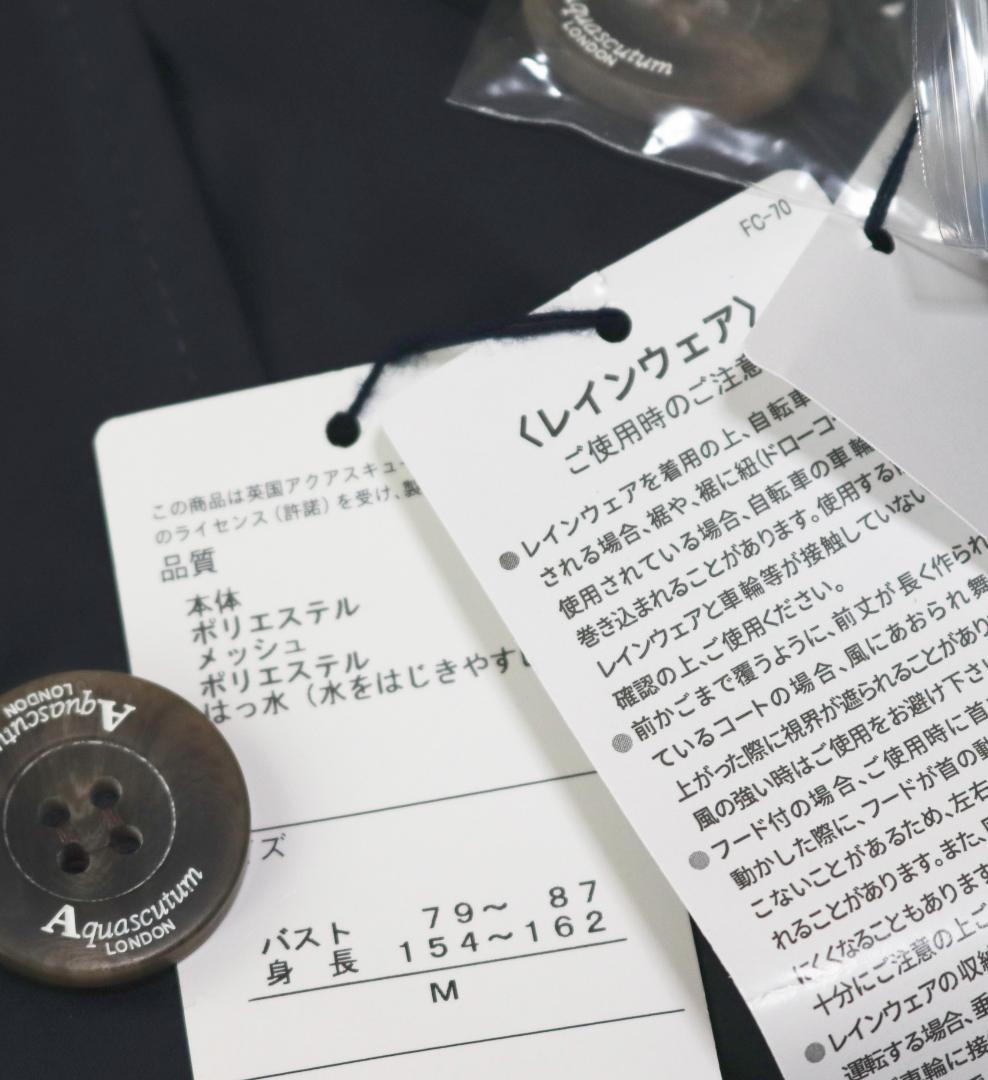 Aquascutum
LONDON
FC-70
〈レインウェア〉
ご使用時のご注意
レインウェアを着用の上、自転車
される場合、裾や、裾に紐(ドローコー
使用されている場合、自転車の車輪
巻き込まれることがあります。使用する
レインウェアと車輪等が接触していない
確認の上、ご使用ください。
前かごまで覆うように、前丈が長く作られ
ているコートの場合、風にあおられ舞
上がった際に視界が遮られることがあり
風の強い時はご使用をお避け下さい
フード付の場合、ご使用時に首
動かした際に、フードが首の動
こないことがあるため、左右
れることがあります。また、
にくくなることもあります
十分にご注意の上ご
レインウェアの収納
運転する場合、垂
車輪に接
この商品は英国アクアスキュー
のライセンス(許諾)を受け、製
品質
本体
ポリエステル
メッシュ
ポリエステル
はっ水(水をはじきやすい
ズ
バスト 79〜 87
身 長 154〜162
M
Aquascutum
LONDON
Aquascutum
LONDON